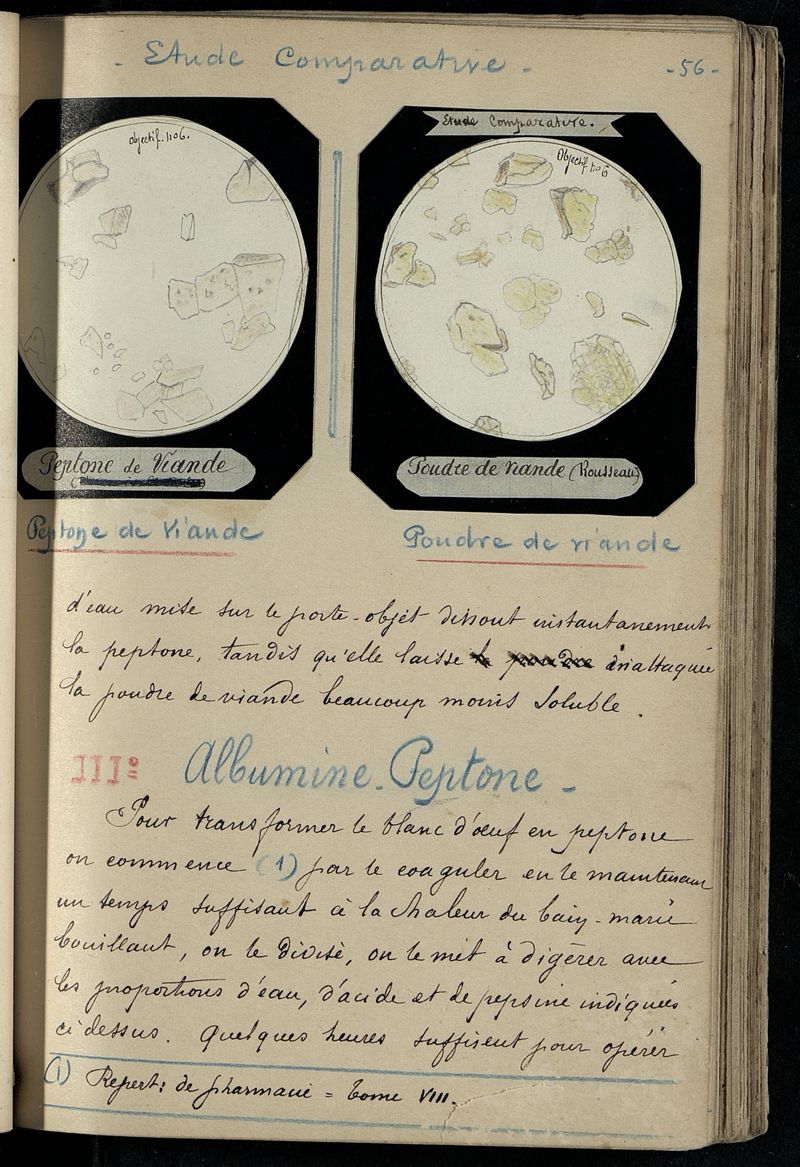 - Etude Comparative -
- 56 -
Objectif. no 6.
Peptone de Viande
Etude Comparative.
Objectif no 6
Poudre de viande (Rousseau)
Peptone de Viande
Poudre de viande
d'eau mise sur le porte-objet dissout instantanement
la peptone, tandis qu'elle laisse la poudre inattaquée
la poudre de viande beaucoup moins soluble.
IIIº Albumine-Peptone -
Pour transformer le blanc d'œuf en peptone
on commence (1) par le coaguler en le maintenant
un temps suffisant à la chaleur du bain-marie
bouillant, on le divise, on le met à digérer avec
les proportions d'eau, d'acide et de pepsine indiquées
ci dessus. Quelques heures suffisent pour opérer
(1) Repert: de pharmacie = Tome VIII.